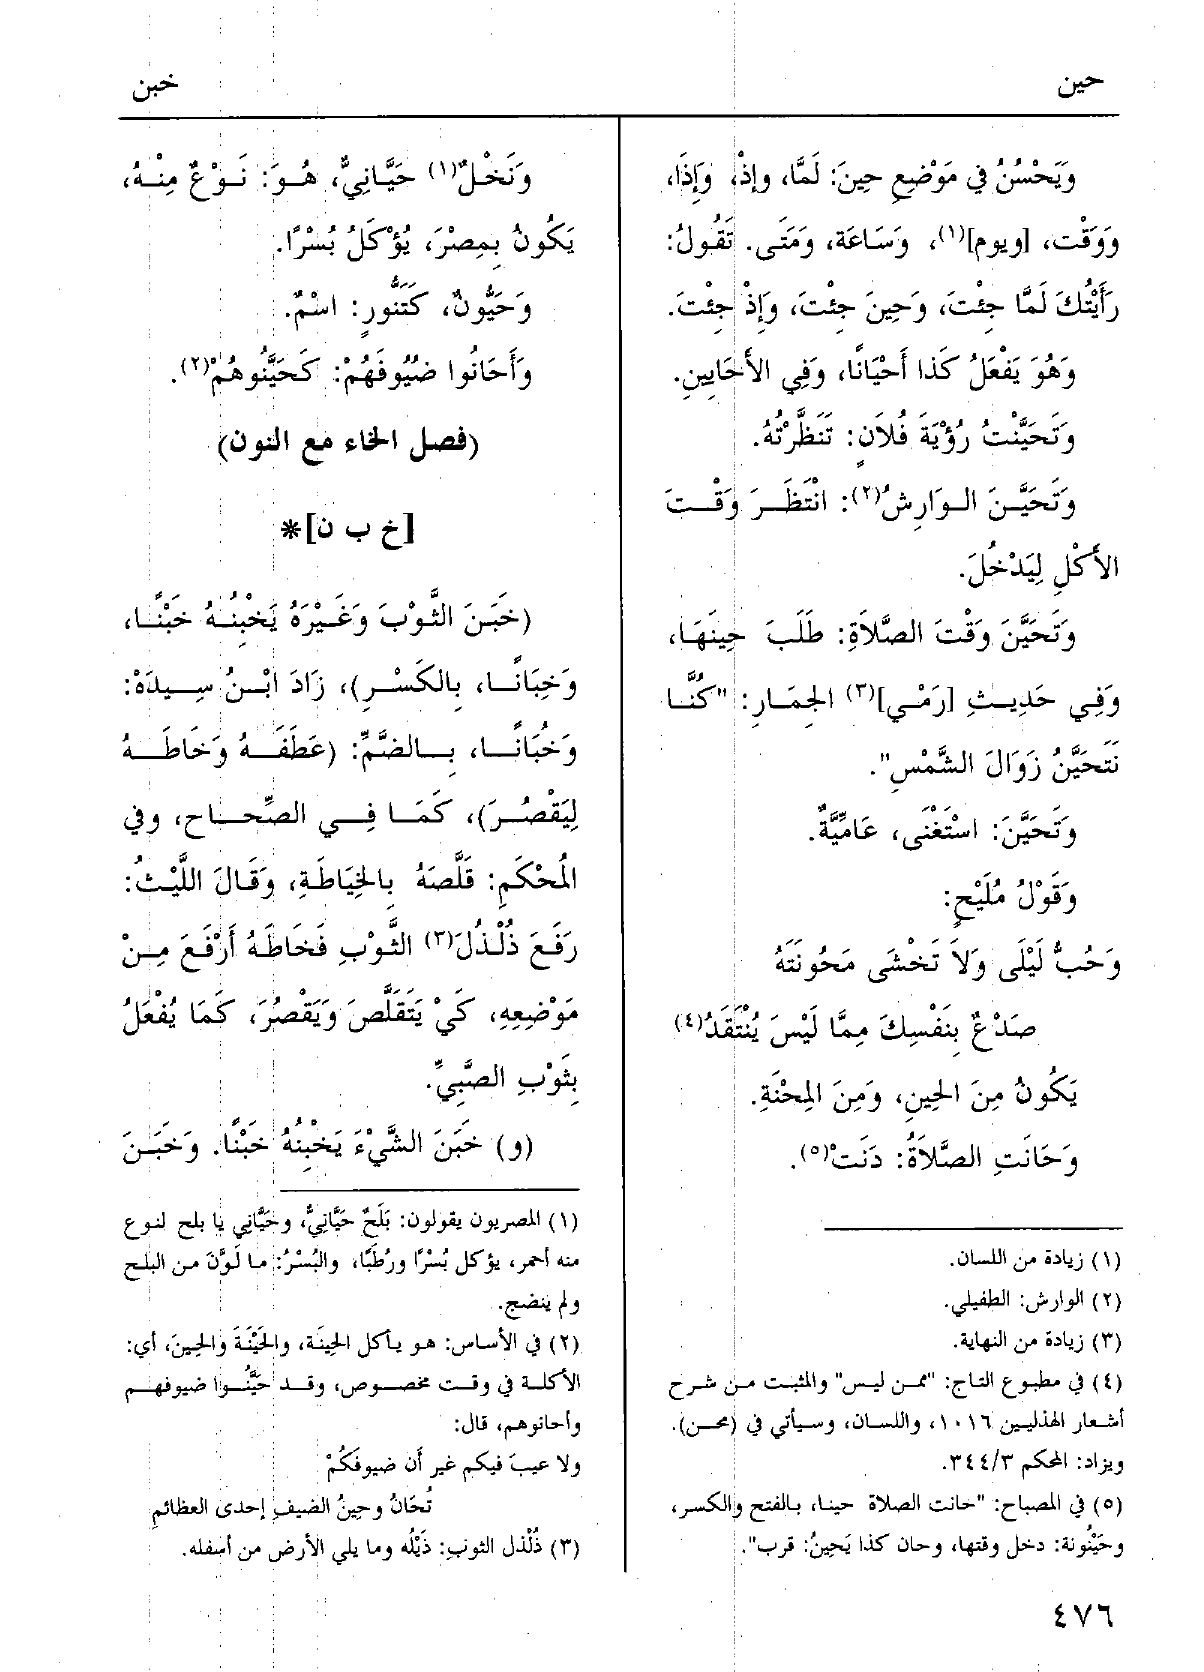 حين
خبن
وَيَحْسُنُ في مَوْضِعِ حِينَ: لَمَّا، وإِذْ، وَإِذَا،
وَوَقْت، [ويوم](١)، وَسَاعَة، وَمَتَى. تَقُولُ:
رَأَيْتُكَ لَمَّا جِئْتَ، وَحِينَ جِئْتَ، وَإِذْ جِئْتَ.
وَهُوَ يَفْعَلُ كَذا أَحْيَانًا، وَفِي الأَحَايِينِ.
وَتَحَيَّنْتُ رُؤْيَةَ فُلاَنٍ: تَنَظَّرْتُهُ.
وَتَحَيَّنَ الوَارِشُ(٢): انْتَظَرَ وَقْتَ
الأَكْلِ لِيَدْخُلَ.
وَتَحَيَّنَ وَقْتَ الصَّلاَةِ: طَلَبَ حِينَهَا،
وَفِي حَدِيثِ [رَمْيِ](٣) الجِمَارِ: "كُنَّا
نَتَحَيَّنُ زَوَالَ الشَّمْسِ".
وَتَحَيَّنَ: اسْتَغْنَى، عَامِّيَّةٌ.
وَقَوْلُ مُلَيْحٍ:
وَحُبُّ لَيْلَى وَلاَ تَخْشَى مَحُونَتَهُ
صَدْعٌ بِنَفْسِكَ مِمَّا لَيْسَ يُنْتَقَدُ(٤)
يَكُونُ مِنَ الحِينِ، وَمِنَ المِحْنَةِ.
وَحَانَتِ الصَّلاَةُ: دَنَتْ(٥).
(١) زيادة من اللسان.
(٢) الوارش: الطفيلي.
(٣) زيادة من النهاية.
(٤) في مطبوع التاج: "ممن ليس" والمثبت من شرح
أشعار الهذليين ١٠١٦، واللسان، وسيأتي في (محن).
ويزاد: المحكم ٣٤٤/٣.
(٥) في المصباح: "حانت الصلاة حينا، بالفتح والكسر،
وحَيْنُونة: دخل وقتها، وحان كذا يَحِينُ: قرب".
وَنَخْلٌ(١) حَيَّانِيٌّ، هُوَ: نَوْعٌ مِنْهُ،
يَكُونُ بِمِصْرَ، يُؤْكَلُ بُسْرًا.
وَحَيُّونٌ، كَتَنُّورٍ: اسْمٌ.
وَأَحَانُوا ضُيُوفَهُمْ: كَحَيَّنُوهُمْ(٢).
(فصل الخاء مع النون)
[خ ب ن]*
(خَبَنَ الثَّوْبَ وَغَيْرَهُ يَخْبِنُهُ خَبْنًا،
وَخِبَانًا، بِالكَسْرِ)، زَادَ ابْنُ سِيدَهْ:
وَخُبَانًا، بِالضَّمِّ: (عَطَفَهُ وَخَاطَهُ
لِيَقْصُرَ)، كَمَا فِي الصِّحَاح، وفي
المُحْكَمِ: قَلَّصَهُ بِالخِيَاطَةِ، وَقَالَ اللَّيْثُ:
رَفَعَ ذُلْذُلَ(٣) الثَّوْبِ فَخَاطَهُ أَرْفَعَ مِنْ
مَوْضِعِهِ، كَيْ يَتَقَلَّصَ وَيَقْصُرَ، كَمَا يُفْعَلُ
بِثَوْبِ الصَّبِيِّ.
(و) خَبَنَ الشَّيْءَ يَخْبِنُهُ خَبْنًا. وَخَبَنَ
(١) المصريون يقولون: بَلَحٌ حَيَّانِيٌّ، وحَيَّاني يا بلح لنوع
منه أحمر، يؤكل بُسْرًا ورُطَبًا، والبُسْرُ: ما لَوَّنَ من البلح
ولم ينضج.
(٢) في الأساس: هو يأكل الحِينَة، والحَيْنَةَ والحِينَ، أي:
الأكلة في وقت مخصوص، وقد حَيَّنُوا ضيوفهم
وأحانوهم، قال:
ولا عيبَ فيكم غير أن ضيوفكُمْ
تُحَانُ وحِينُ الضيفِ إحدى العظائمِ
(٣) ذُلْذل الثوبِ: ذَيْلُه وما يلي الأرض من أسفله.
٤٧٦